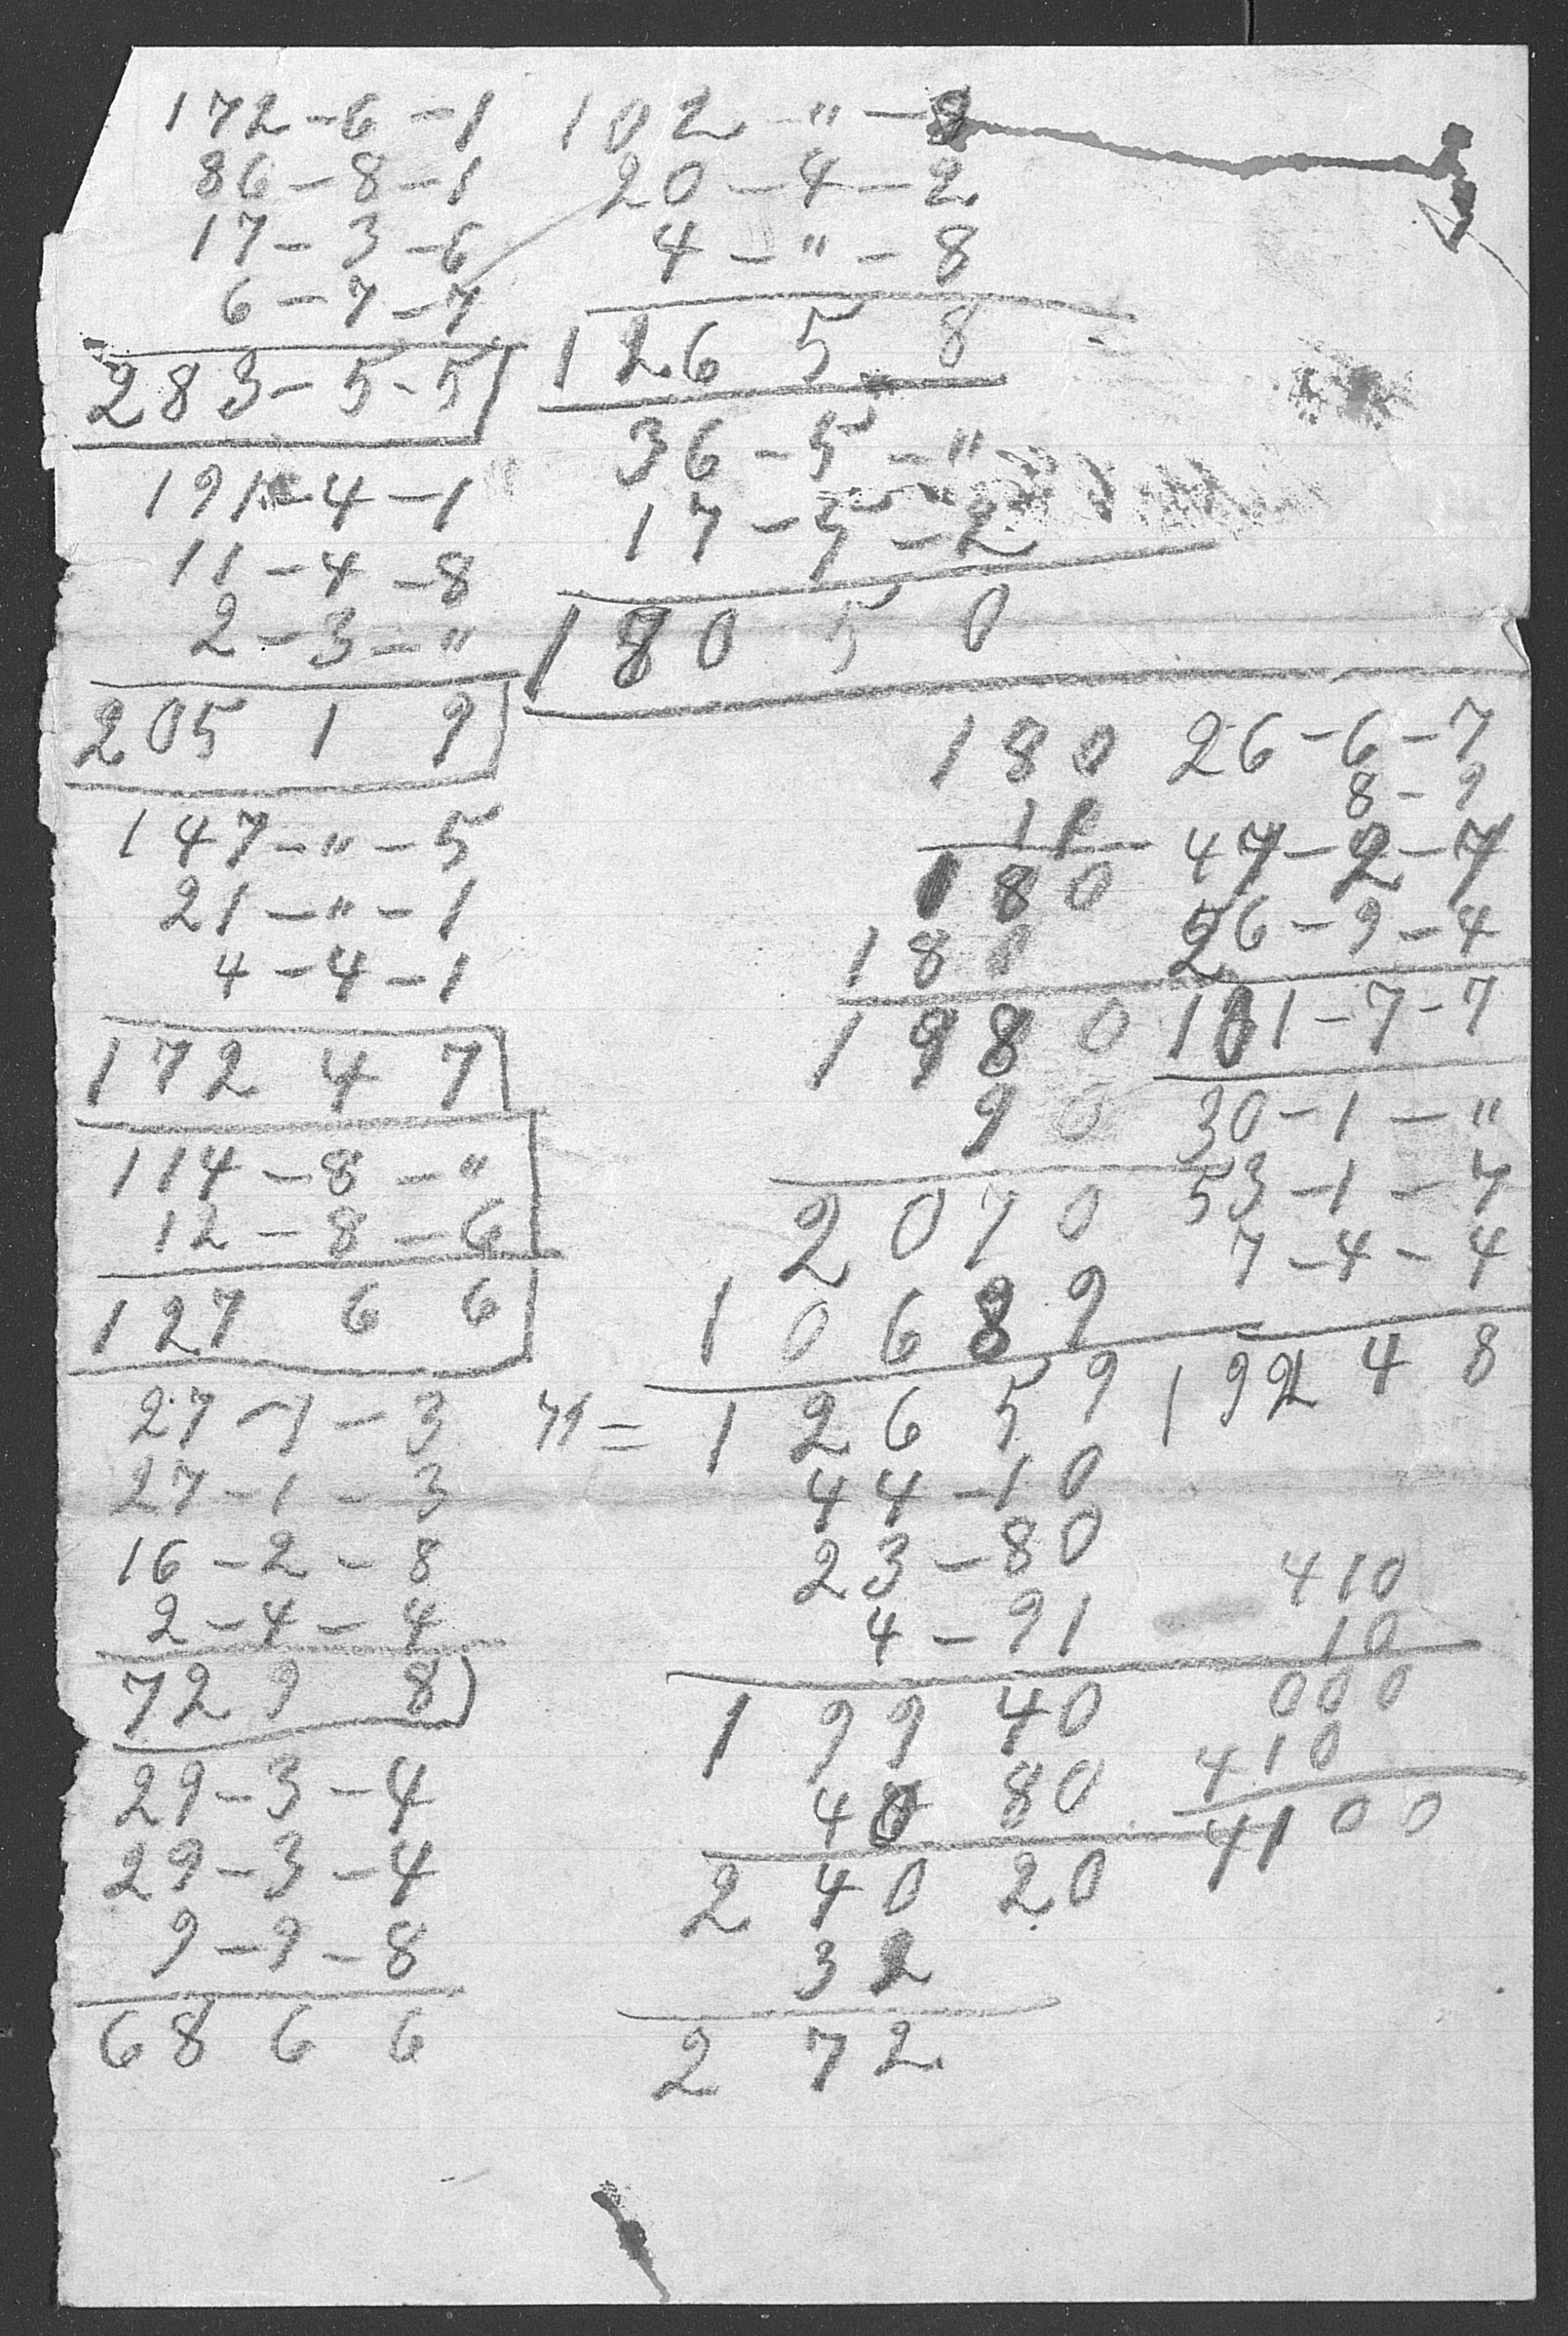 172-6-1
86-8-1
17-3-6
6-7-7
283-5-5
191-4-1
11-4-8
2-3-"
205 1 9
147-"-5
21-"-1
4-4-1
172 4 7
114-8-"
12-8-6
127 6 6
27-1-3
27-1-3
16-2-8
2-4-4
72 9 8
29-3-4
29-3-4
9-9-8
68 6 6
102-"-8
20-4-2
4-"-8
126 5 8
36-5-"
17-5-2
180 5 0
180
11
180
180
1980
90
2070
10689
= 12659
44-10
23-80
4-91
199 40
40 80
240 20
32
272
26-6-7
8-9
47-2-7
26-9-4
101-7-7
30-1-"
53-1-7
7-4-4
192 4 8
410
10
000
410
4100